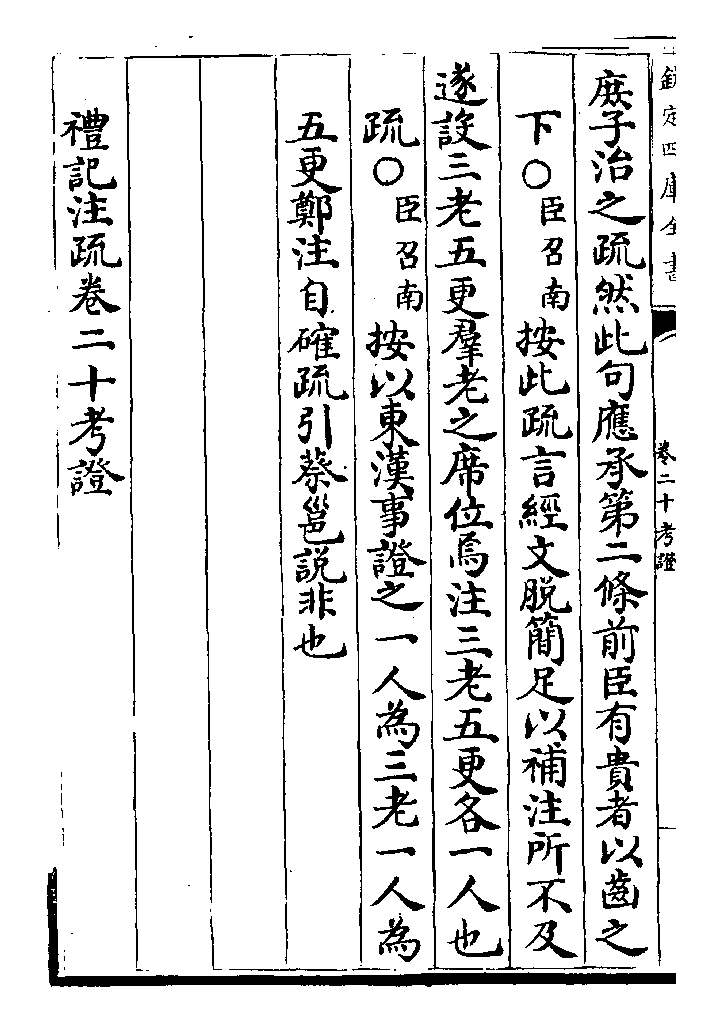 欽定四庫全書
卷二十考證
庻子治之疏然此句應承第二條前臣有貴者以齒之
下○臣召南按此疏言經文脱簡足以補注所不及
遂設三老五更羣老之席位焉注三老五更各一人也
疏○臣召南按以東漢事證之一人為三老一人為
五更鄭注自確疏引蔡邕説非也
禮記注疏卷二十考證